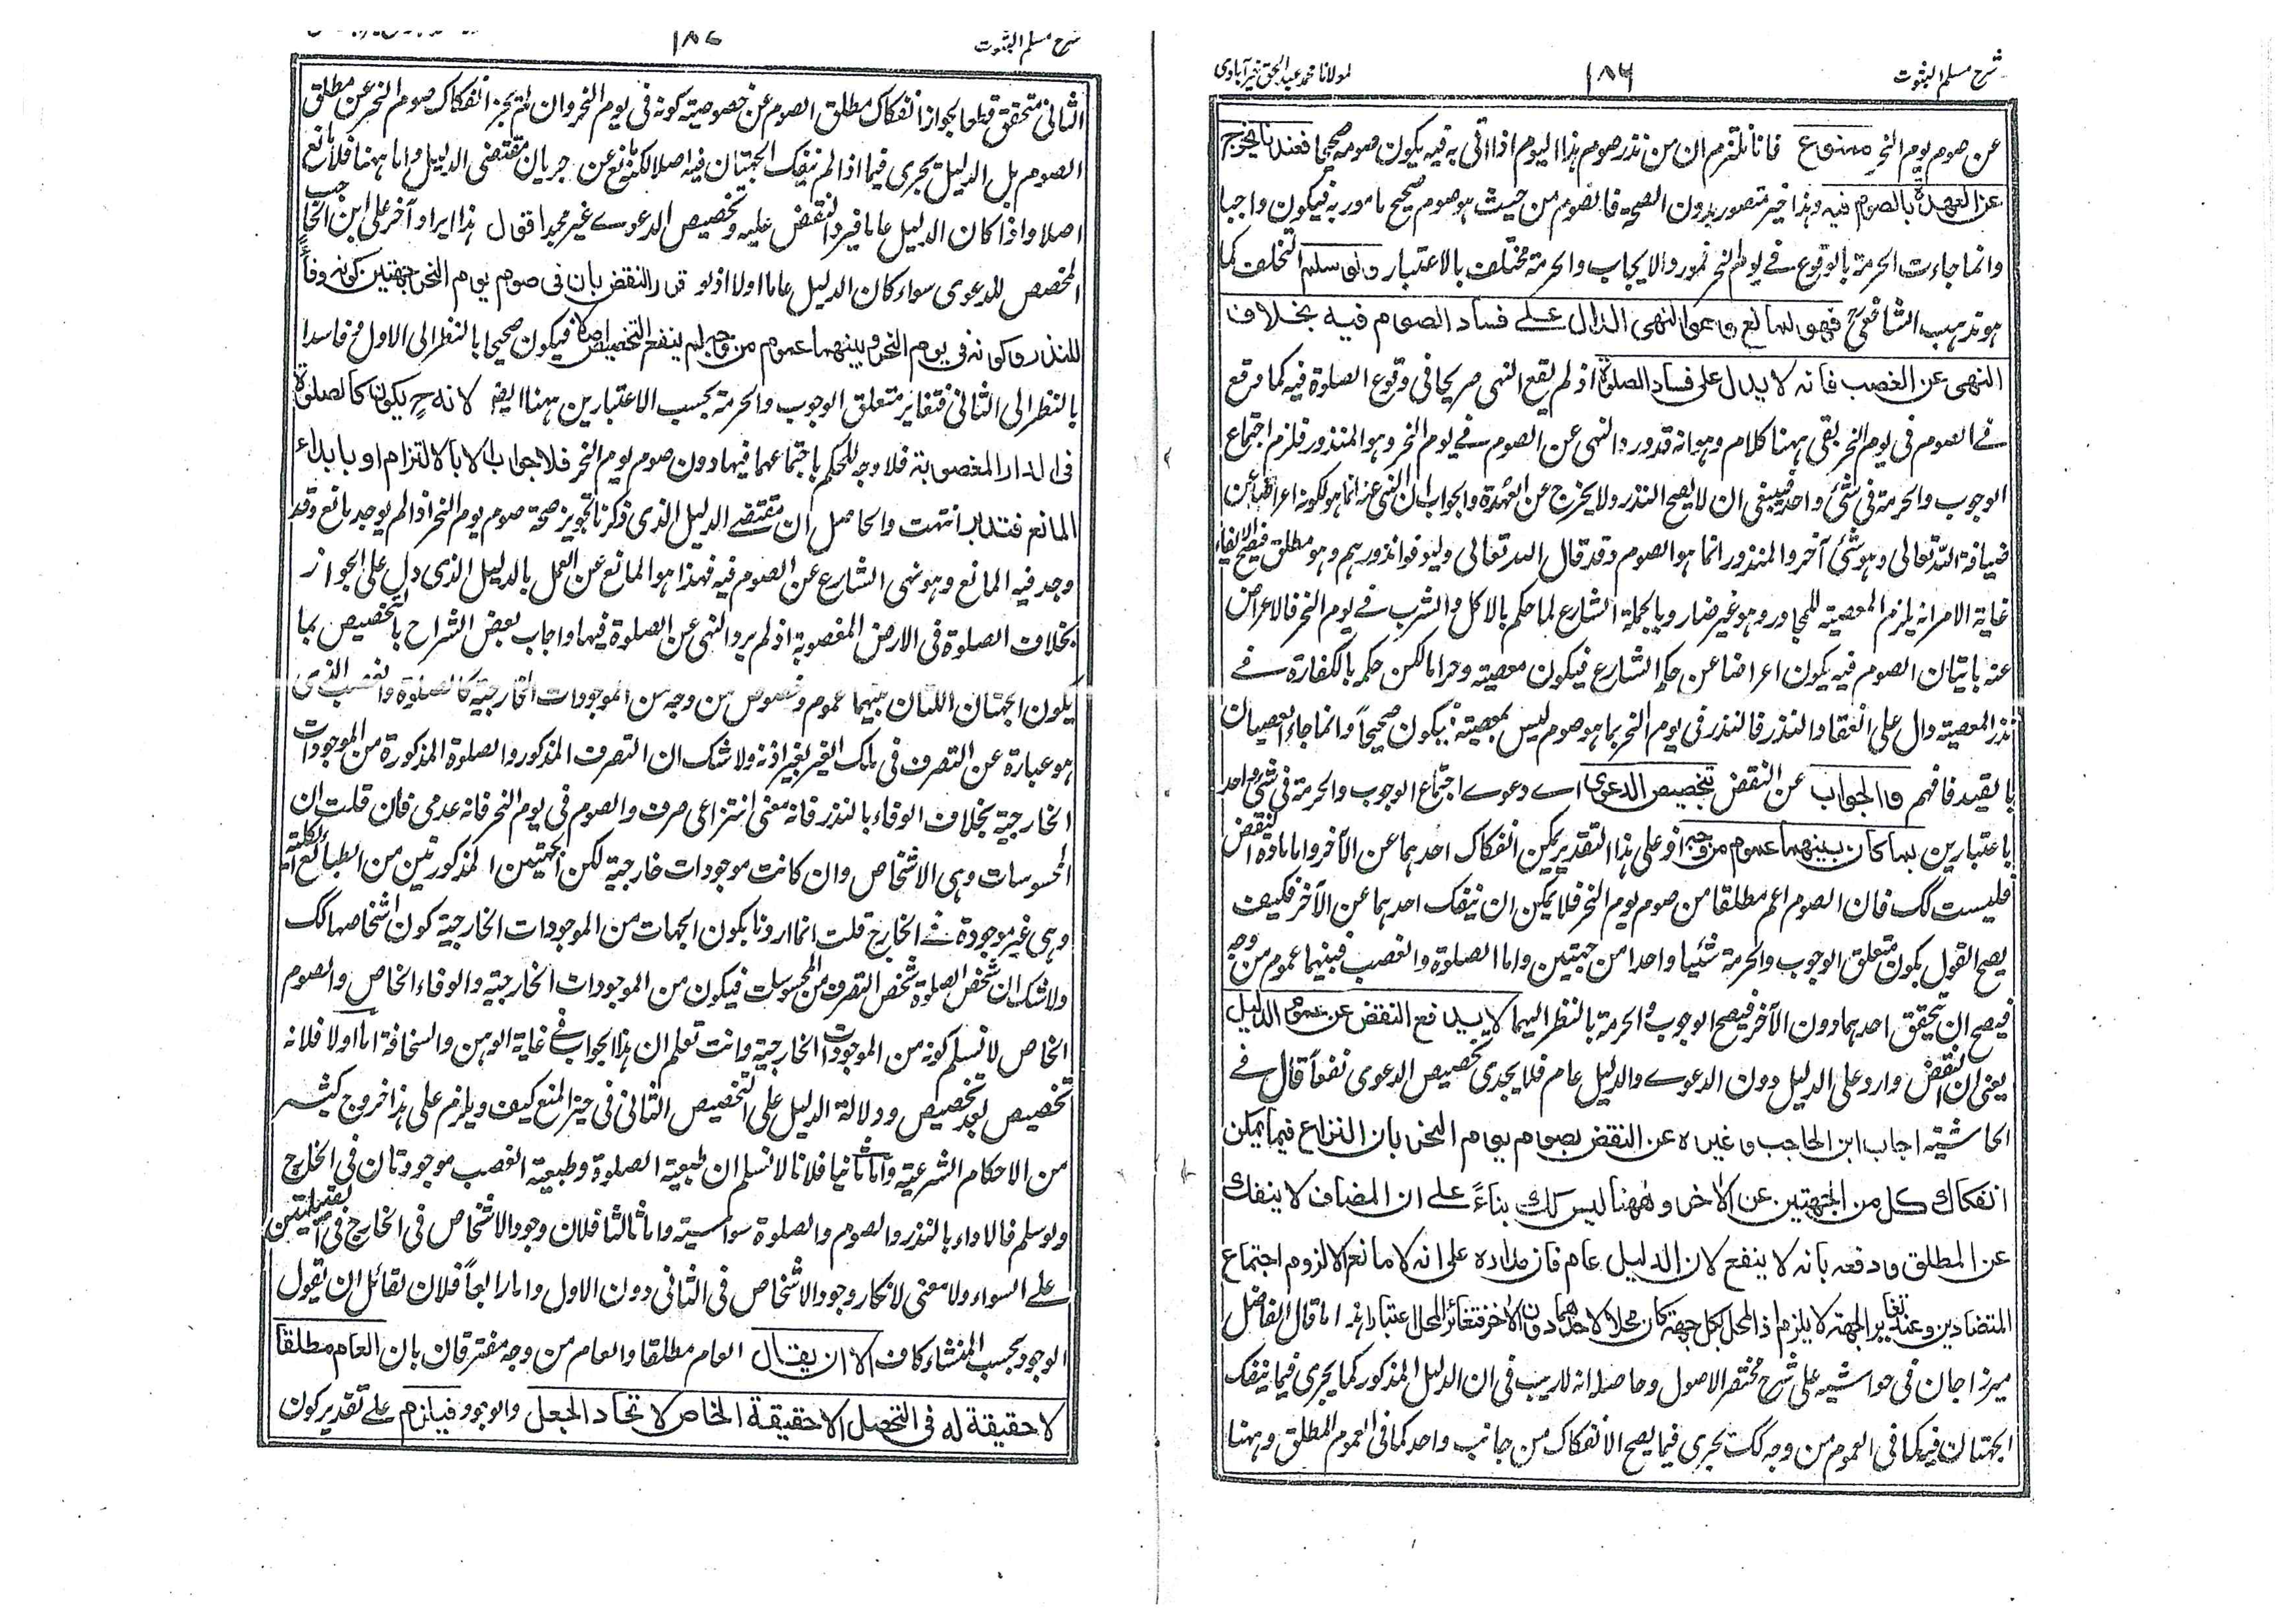 شرح مسلم الثبوت ١٨٦ لمولانا محمد عبد الحق خيرآبادى
عن صوم يوم النحر ممنوع فانا نلتزم ان من نذر صوم هذا اليوم اذا اتى به فيه يكون صومه صحيحا فعندنا يخرج
عن العهدة بالصوم فيه وهذا غير متصور بدون الصحة فالصوم من حيث هو صوم صحيح مامور به فيكون واجبا
وانما جاءت الحرمة بالوقوع فے يوم النحر فمورد الايجاب والحرمة مختلف بالاعتبار ولو سلم التخلف كما
هو مذهب الشافعىؒ فهو لمانع وهو النهى الدال علے فساد الصوم فيه بخلاف
النهى عن الغصب فانه لا يدل على فساد الصلوة اذ لم يقع النهى صريحا فى وقوع الصلوة فيه كما وقع
فے الصوم فى يوم النحر بقى ههنا كلام وهو انه قد ورد النهى عن الصوم فے يوم النحر وهو المنذور فلزم اجتماع
الوجوب والحرمة فى شئ واحد فينبغى ان لا يصح النذر ولا يخرج عن العهدة والجواب ان النهى عنه انما هو لكونه اعراضا عن
ضيافة الله تعالى وهو شئ آخر والمنذور انما هو الصوم وقد قال الله تعالى وليوفوا نذورهم وهو مطلق فيصح الايفاء
غاية الامر انه يلزم المعصية للمجاور وهو غير ضار وبالجملة الشارع لما حكم بالاكل والشرب فے يوم النحر فالاعراض
عنه باتيان الصوم فيه يكون اعراضا عن حكم الشارع فيكون معصية وحراما لكن حكمه بالكفارة فے
نذر المعصية دال على انعقاد النذر فالنذر فى يوم النحر بما هو صوم ليس بمعصية فيكون صحيحاً وانما جاء العصيان
بالقيد فافهم والجواب عن النقض بتخصيص الدعوى اے دعوے اجتماع الوجوب والحرمة فى شئ واحد
باعتبارين بما كان بينهما عموم من وجه اذ على هذا التقدير يمكن انفكاك احدهما عن الآخر واما مادة النقض
فليست كك فان الصوم اعم مطلقا من صوم يوم النحر فلا يمكن ان ينفك احدهما عن الآخر فكيف
يصح القول بكون متعلق الوجوب والحرمة شيئا واحدا من جهتين واما الصلوة والغصب فبينهما عموم من وجه
فيصح ان يتحقق احدهما دون الآخر فيصح الوجوب والحرمة بالنظر اليهما لا يدفع النقض عن عموم الدليل
يعنى ان النقض وارد على الدليل دون الدعوے والدليل عام فلا يجدى تخصيص الدعوى نفعاً قال فے
الحاشية اجاب ابن الحاجب وغيره عن النقض بصوم يوم النحر بان النزاع فيما يمكن
انفكاك كل من الجهتين عن الاخر وههنا ليس كك بناءً علے ان المضاف لا ينفك
عن المطلق ودفعه بانه لا ينفع لان الدليل عام فان مداره على انه لا مانع الا لزوم اجتماع
المتضادين وعند تغاير الجهة لا يلزم اذ المحل بكل جهة كان محلا لاحدهما دون الاخر فتغائر المحل اعتبارا هذا ما قال الفاضل
ميرزا جان فى حواشيه على شرح مختصر الاصول وحاصله انه لاريب فى ان الدليل المذكور كما يجرى فيما ينفك
الجهتان فيه كما فى العموم من وجه كك يجرى فيما يصح الانفكاك من جانب واحد كما فى العموم المطلق وههنا
شرح مسلم الثبوت ١٨٧
الثانى متحقق قطعا بجواز انفكاك مطلق الصوم عن خصوصية كونه فى يوم النحر وان لم يجز انفكاك صوم النحر عن مطلق
الصوم بل الدليل يجرى فيما اذا لم ينفك الجهتان فيه اصلا لكنه مانع عن جريان مقتضى الدليل واما ههنا فلا مانع
اصلا واذا كان الدليل عاما فيرد النقض عليه وتخصيص الدعوے غير مجد اقول هذا ايراد آخر على ابن الحاجب
المخصص للدعوى سواء كان الدليل عاما اولا اذ لو قرر النقض بان فى صوم يوم النحر جهتين كونه وفاءً
للنذر وكونه فى يوم النحر وبينهما عموم من وجه لم ينفع التخصيص اصلا فيكون صحيحا بالنظر الى الاول فاسدا
بالنظر الى الثانى فتغاير متعلق الوجوب والحرمة بحسب الاعتبارين ههنا ايضا لانه ح يكون كالصلوة
فى الدار المغصوبة فلا وجه للحكم باجتماعهما فيها دون صوم يوم النحر فلا جواب الا بالالتزام او بابداء
المانع فتدبر انتهت والحاصل ان مقتضے الدليل الذى ذكرنا تجويز صحة صوم يوم النحر اذا لم يوجد مانع وقد
وجد فيه المانع وهو نهى الشارع عن الصوم فيه فهذا هو المانع عن العمل بالدليل الذى دل على الجواز
بخلاف الصلوة فى الارض المغصوبة اذ لم يرد النهى عن الصلوة فيها واجاب بعض الشراح بالتخصيص بما
يكون الجهتان اللتان بينهما عموم وخصوص من وجه من الموجودات الخارجية كالصلوة والغصب الذى
هو عبارة عن التصرف فى ملك الغير بغير اذنه ولا شك ان التصرف المذكور والصلوة المذكورة من الموجودات
الخارجية بخلاف الوفاء بالنذر فانه معنى انتزاعى صرف والصوم فى يوم النحر فانه عدمى فان قلت ان
المحسوسات وهى الاشخاص وان كانت موجودات خارجية لكن الجهتين المذكورتين من الطبائع الكلية
وهى غير موجودة فے الخارج قلت انما اردنا بكون الجهات من الموجودات الخارجية كون اشخاصها كك
ولا شك ان شخص الصلوة شخص التصرف من المحسوسات فيكون من الموجودات الخارجية والوفاء الخاص والصوم
الخاص لا نسلم كونه من الموجودات الخارجية وانت تعلم ان هذا الجواب فے غاية الوهن والسخافة اما اولا فلانه
تخصيص بعد تخصيص ودلالة الدليل على التخصيص الثانى فى حيز المنع كيف ويلزم على هذا خروج كثير
من الاحكام الشرعية واما ثانيا فلانا لا نسلم ان طبيعة الصلوة وطبيعة الغصب موجودتان فى الخارج
ولو سلم فالاداء بالنذر والصوم والصلوة سواسية واما ثالثا فلان وجود الاشخاص فى الخارج فى القبيلتين
علے السواء ولا معنى لانكار وجود الاشخاص فى الثانى دون الاول واما رابعاً فلان لقائل ان يقول
الوجود بحسب المنشاء كاف الا ان يقال العام مطلقا والعام من وجه مفترقان بان العام مطلقا
لا حقيقة له فى التحصل الا حقيقة الخاص لاتحاد الجعل والوجود فيلزم علے تقدير كون